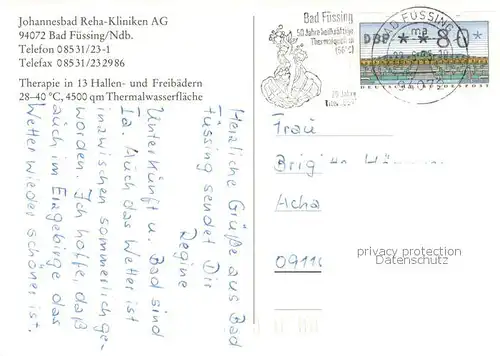 Johannesbad Reha-Kliniken AG
94072 Bad Füssing/Ndb.
Telefon 08531/23-1
Telefax 08531/232986
Therapie in 13 Hallen- und Freibädern
28-40 °C, 4500 qm Thermalwasserfläche
Bad Füssing
50 Jahre heilkräftige
Thermalquelle
(56°C)
25 Jahre
BAD FÜSSING
DBP **80*
DEUTSCHE BUNDESPOST
Herzliche Grüße aus Bad
Füssing sendet Dir
Regine
Unterkunft u. Bad sind
Ia. Auch das Wetter ist
inzwischen sommerlich ge-
worden. Ich hoffe, daß
auch im Erzgebirge das
Wetter wieder schöner ist.
Frau
Acha
0911
privacy protection
Datenschutz